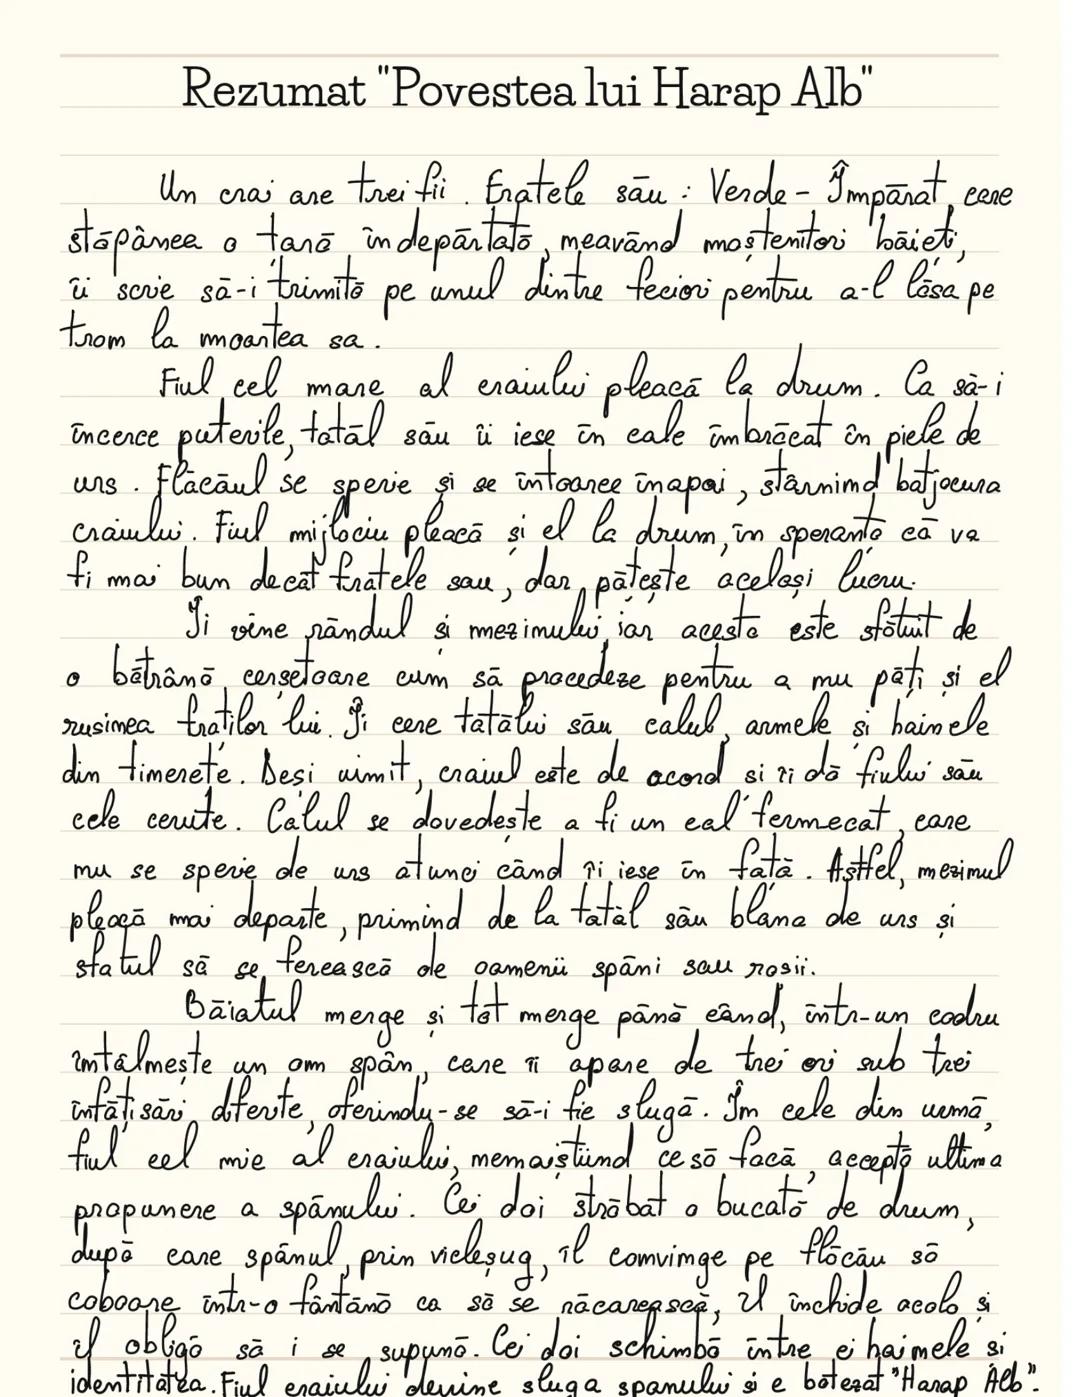 Rezumat "Povestea lui Harap Alb"
Un crai are trei fii. Fratele său: Verde-Împărat, care
stăpânea o țară îndepărtată, neavând moștenitori băieți,
îi scrie să-i trimită pe unul dintre feciori pentru a-l lăsa pe
tron la moartea sa.
Fiul cel mare al craiului pleacă la drum. Ca să-i
încerce puterile, tatăl său îi iese în cale îmbrăcat în piele de
urs. Flăcăul se sperie și se întoarce înapoi, stârnind batjocura
craiului. Fiul mijlociu pleacă și el la drum, în speranta că va
fi mai bun decât fratele sau, dar pățește același lucru.
Ii vine rândul și mezinului, iar acesta este sfătuit de
o bătrână cerșetoare cum să procedeze pentru a nu păți și el
rușinea fraților lui. Ii cere tatălui său calul, armele și hainele
din tinerețe. Deși uimit, craiul este de acord și îi dă fiului său
cele cerute. Calul se dovedește a fi un cal fermecat, care
nu se sperie de urs atunci când îi iese în față. Astfel, mezinul
pleacă mai departe, primind de la tatăl său blana de urs și
sfatul să se ferească de oamenii spâni sau roșii.
Băiatul merge și tot merge până când, într-un codru
întâlnește un om spân, care îi apare de trei ori sub trei
înfățișări diferite, oferindu-se să-i fie slugă. În cele din urmă,
fiul cel mic al craiului, nemaiștiind ce să facă, acceptă ultima
propunere a spânului. Cei doi străbat o bucată de drum,
după care spânul, prin vicleșug, îl convinge pe flăcău să
coboare într-o fântână ca să se răcorească, îl închide acolo și
îl obligă să i se supună. Cei doi schimbă între ei hainele și
identitatea. Fiul craiului devine sluga spanului și e botezat "Harap Alb".